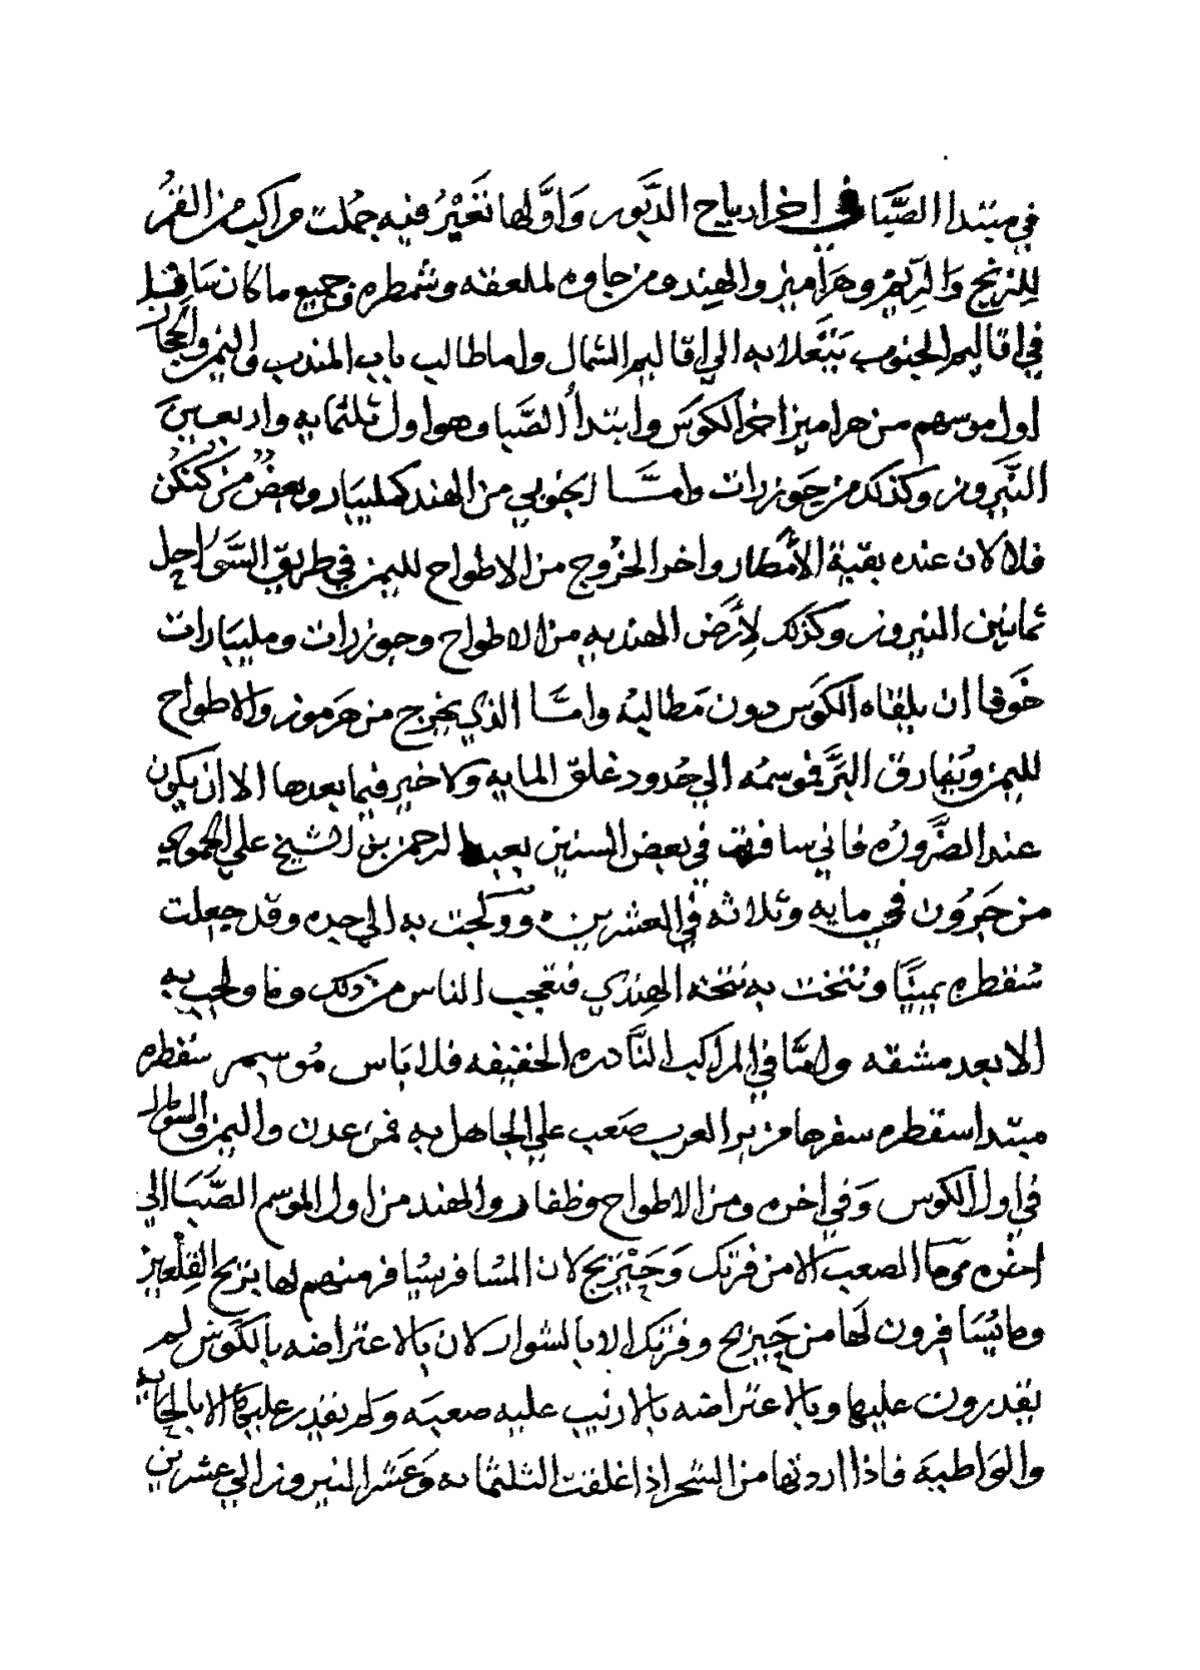 في مبتدا الصَّبَا في اخر ارياح الدَّبور وَاوَّلها تَغَيْرُ فيه جُملت مراكب من القُمُر
لِلزنج وَالرِيم وهَرَاميز والهِند ومن جاوه لملعقه وشمطره وجميع ما كان سَا
في اقاليم الجنوب يَنْتَّعلا به الي اقاليم الشمال واما طالب باب المندب واليمن والحجاز
اول موسهم من هراميز اخر الكوَس وابتدأ الصَّبا وهو اول ثلثمايه واربعين
النَّيروز وكذلك من جَوزرات وامَّا الجنوبي من الهند كمليبار وبعضٌ من كُنْكن
فلا كان عنده بقية الأمطار واخر الخُروج من الاطواح لليمن في طريق السَّوَاحِل
ثمانين النيروز وكذلك لِأَرْض الهنديه من الاطواح وجوزرات ومليبَارات
خَوفا ان يلقاه الكَوَس دون مَطالبُه وامَّا الذي يخرج من هَرموز والاطواح
لليمن ويُفارق البَرَّ فموسمُه الي حُدود غلق المايه ولا خير فيما بعدها الا ان يكون
عند الضَّروُره فاني سافرت في بعض السنين بعبد الرحمن بن الشيخ علي الحموي
من جَرَوُن في مايه وثلاثه في العشرين وولّجت به الي جده وقد جعلت
سُقطره يمينًا ونتخت به نتخته الهِندي فتعجب الناس من ذلك وما ولجت به
الا بعد مشقه وامَّا في المراكب النَّادره الخفيفه فلا بَاس مُوسم سُقطره
مبتدا سقطره سفرها من بر العرب صَعب علي الجاهل به فمن عدن واليمن والسواحل
في اول الكوس وَفي اخره ومن الاطواح وظفار والهند من اول الموسم الصَّبَا الي
اخره وما الصعب الا من فرتك وَحَيْرِيج لان المُسَافر يسُافر منهم لها بريح القِلْعين
وما يُسَافرون لَها من حَيريج وفرتك الا بالشوار لان بالاعتراضه بالكَوَس لم
يقدرون عليها وبالاعتراضه بالازيب عليه صعبَه وَلم يقدر عليها الا
والتَواطيَه فاذا اردتها من الشحر اذا غلقت الثلثمايه وَعَشر النيروز الي عشرين